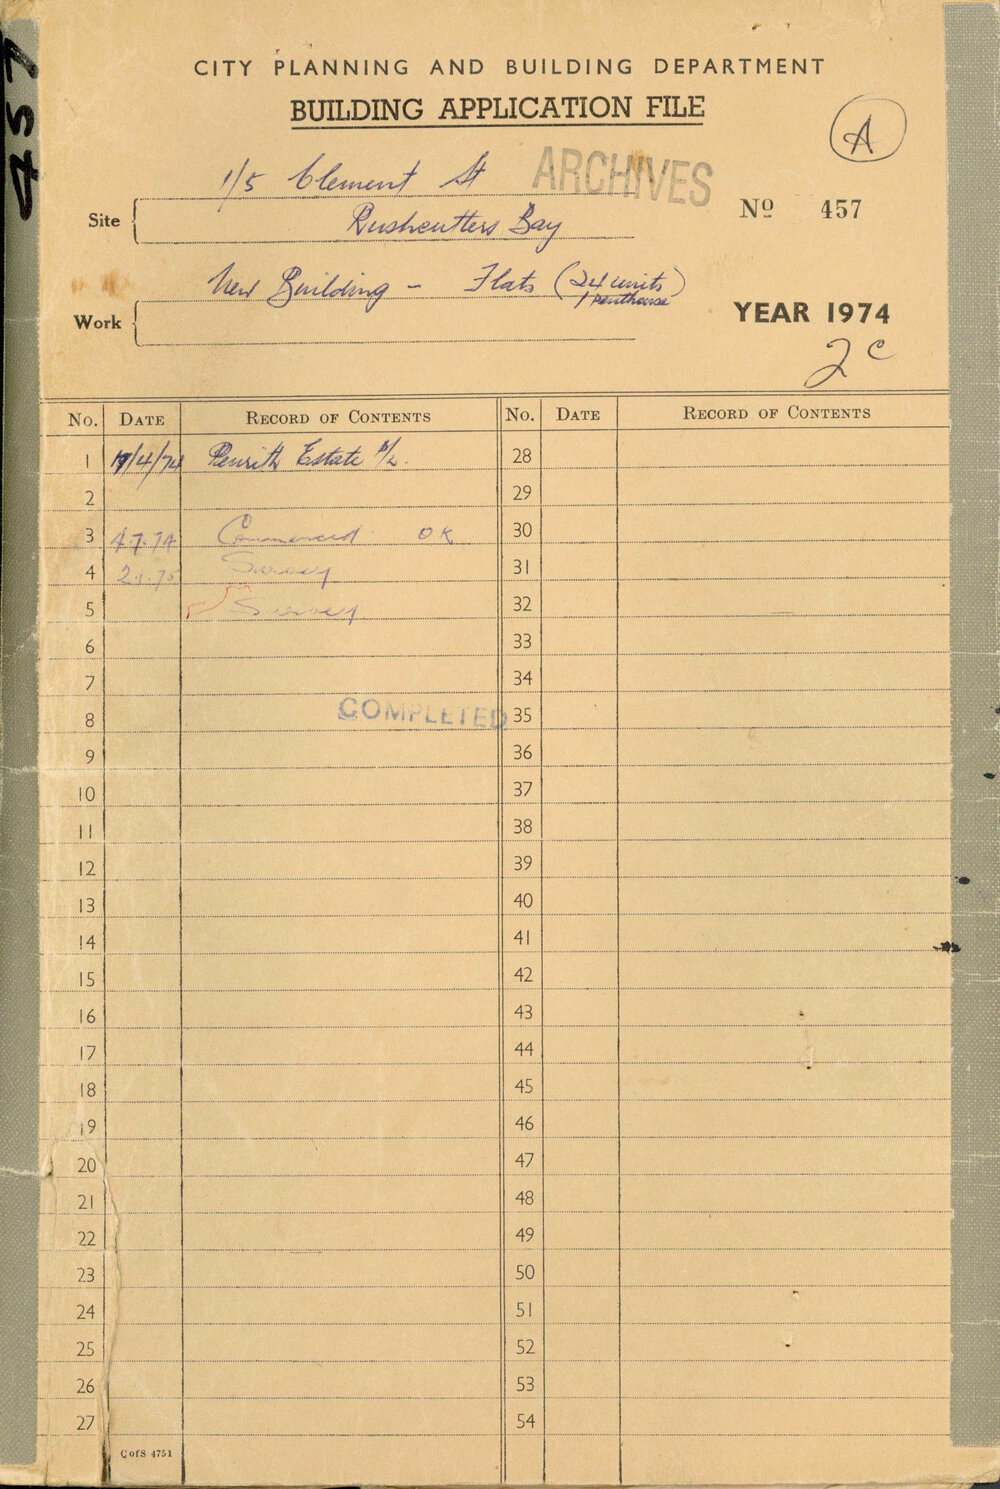 457
CITY PLANNING AND BUILDING DEPARTMENT
BUILDING APPLICATION FILE
A
1/5 Clement St
ARCHIVES
Site
Rushcutters Bay
Nº 457
New Building - Flats (24 units)
1 penthouse
Work
YEAR 1974
2c
No. DATE RECORD OF CONTENTS No. DATE RECORD OF CONTENTS
1 /4/74 Penrith Estate P/L. 28
2 29
3 4.7.74 Commenced OK 30
4 2.1.75 Survey 31
5 Survey 32
6 33
7 34
8 COMPLETED 35
9 36
10 37
11 38
12 39
13 40
14 41
15 42
16 43
17 44
18 45
19 46
20 47
21 48
22 49
23 50
24 51
25 52
26 53
27 54
C of S 4751